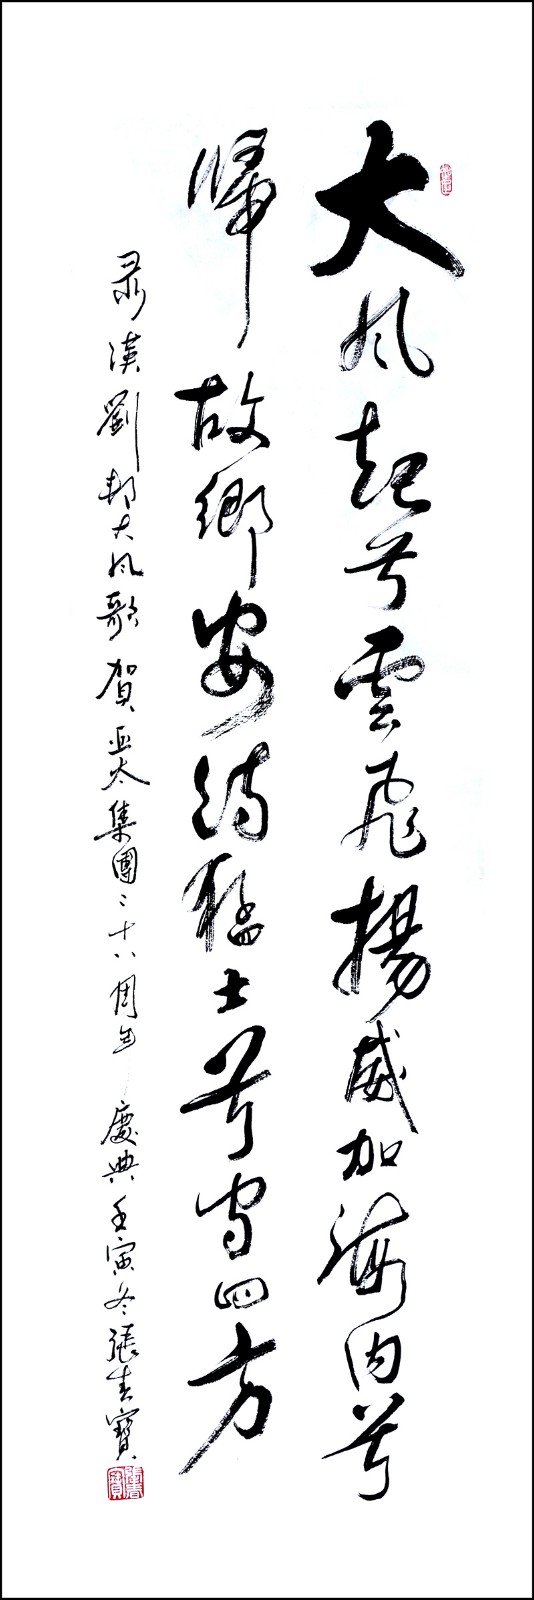 大風起兮雲飛揚威加海內兮
歸故鄉安得猛士兮守四方
录漢劉邦大風歌賀亚太集團三十八周年慶典壬寅冬張春寶